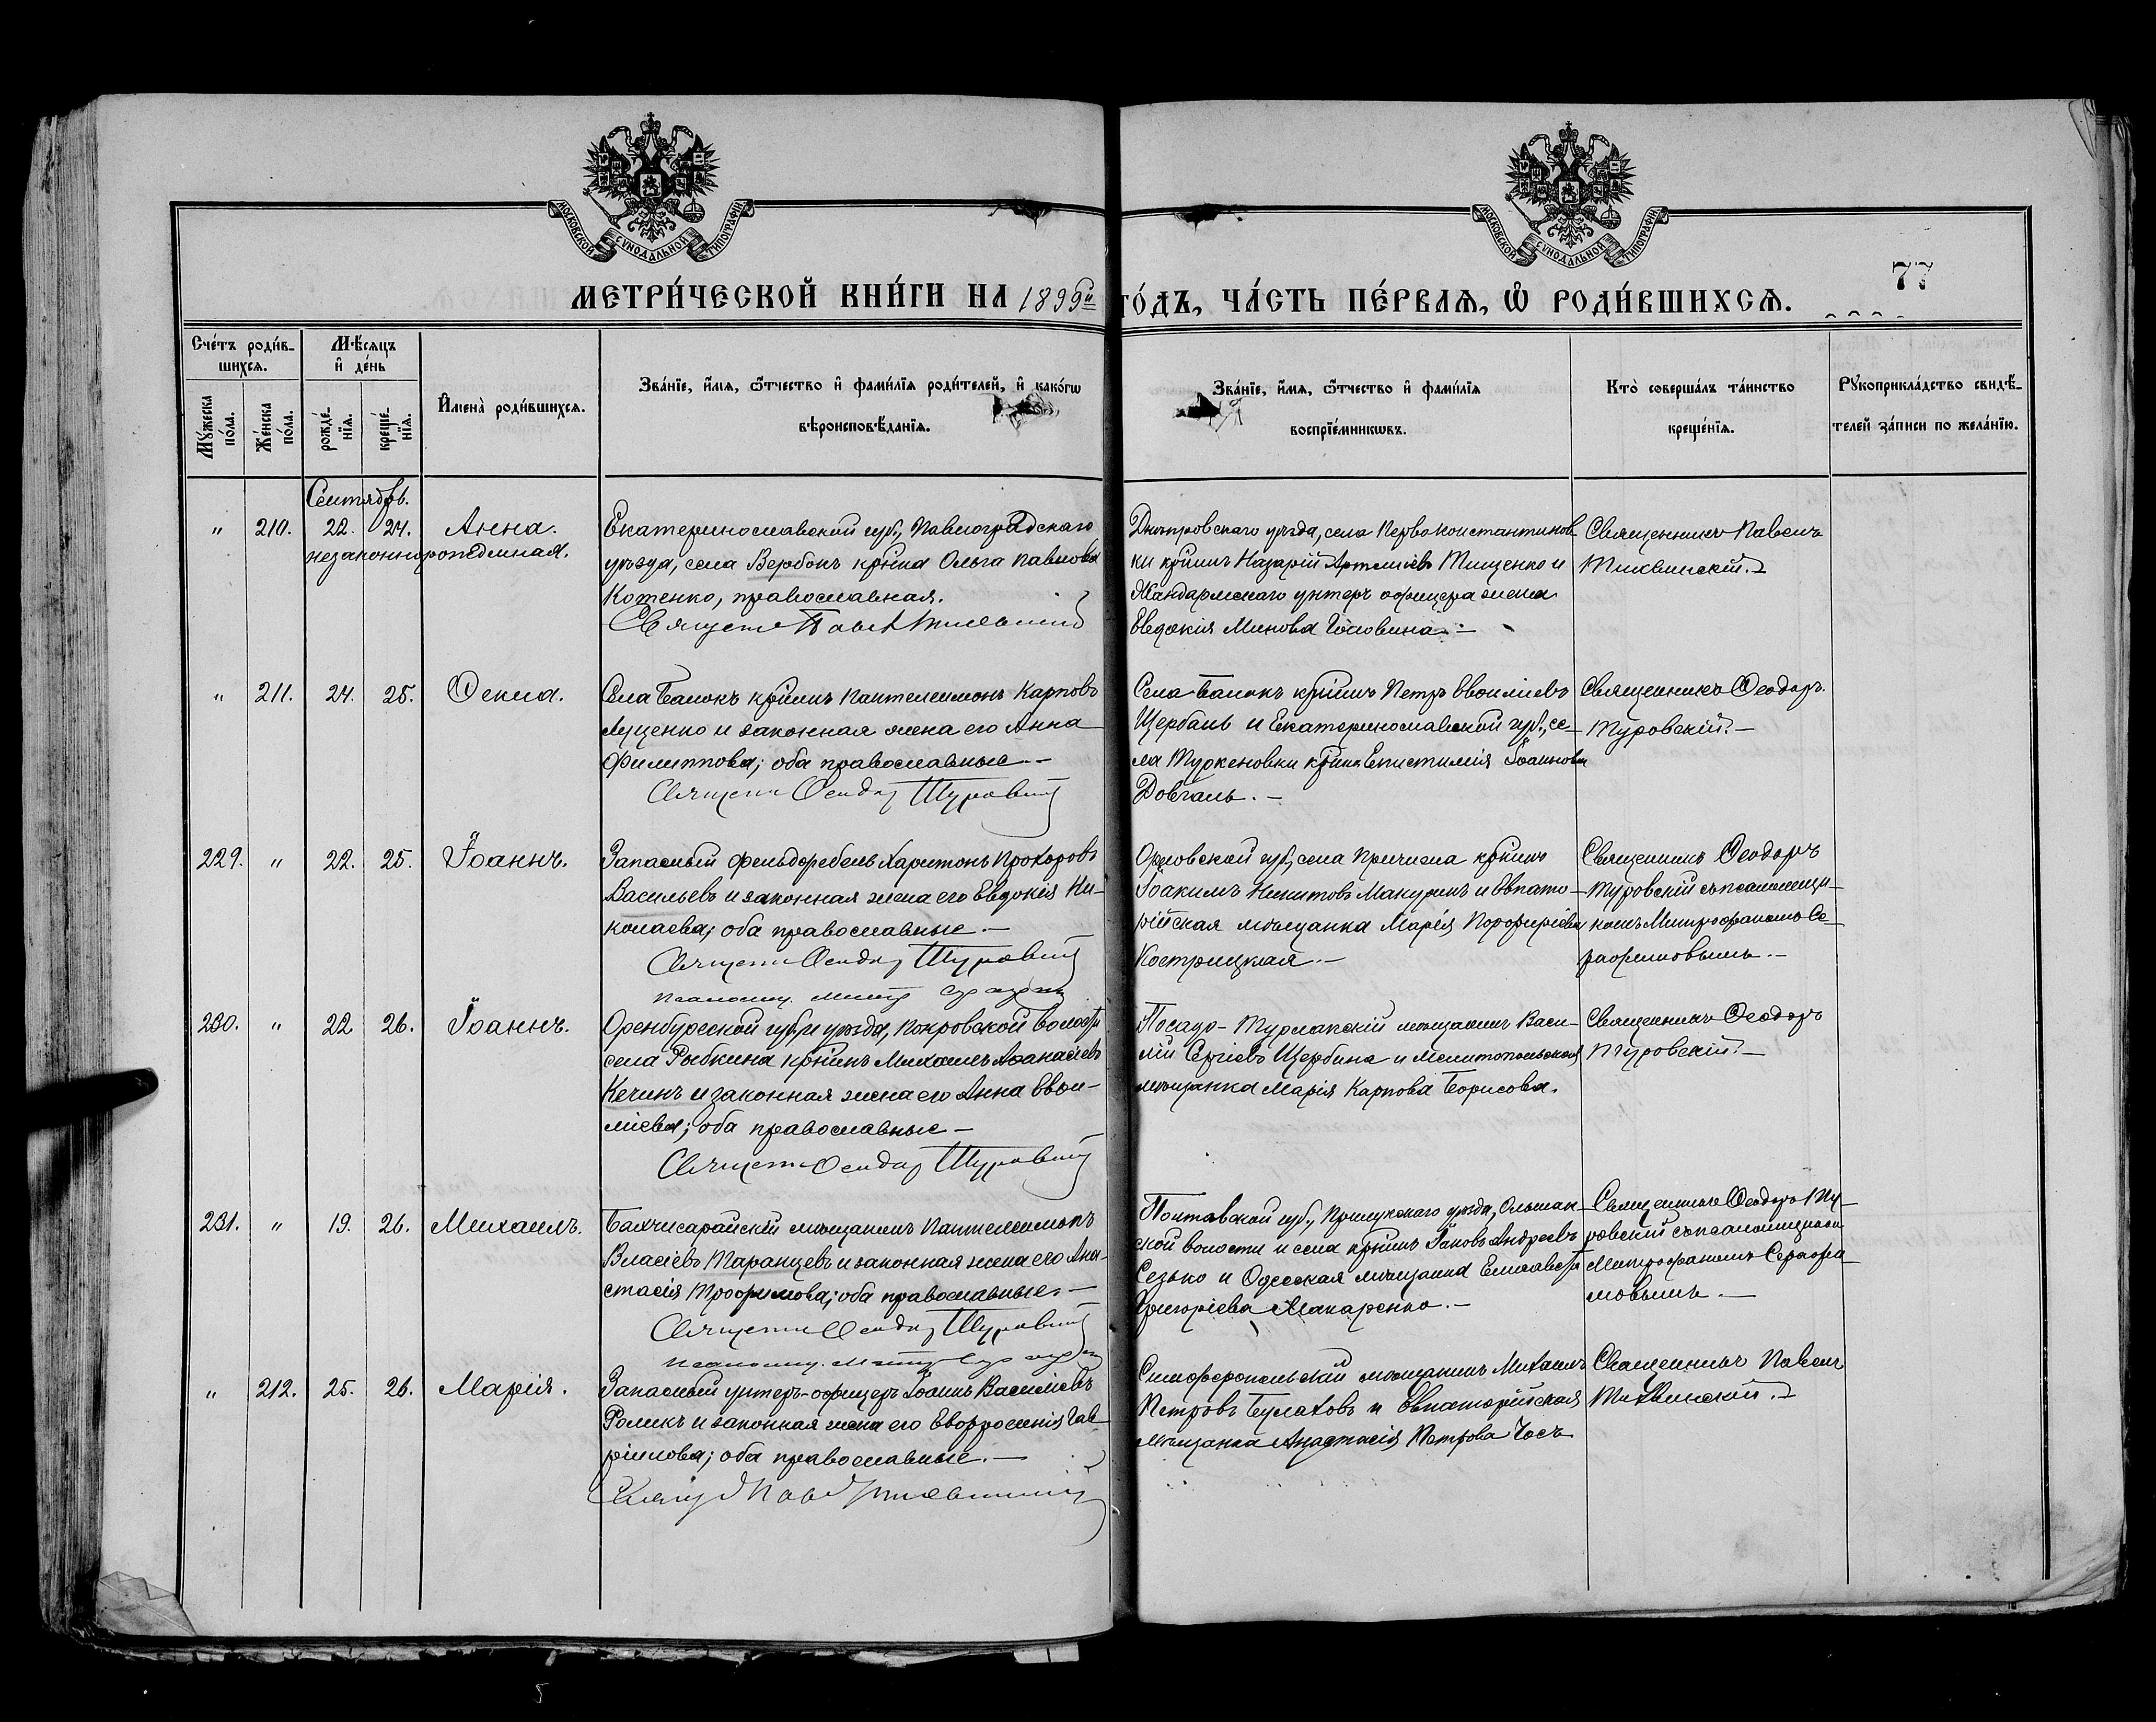 МОСКОВСКОЙ СУНОДАЛЬНОЙ ТИПОГРАФІИ
МОСКОВСКОЙ СУНОДАЛЬНОЙ ТИПОГРАФІИ
77
МЕТРИ́ЧЕСКОЙ КНИ́ГИ НА 1899й
ГО́ДЪ, ЧА́СТЬ ПЕ́РВАЯ, Ѡ҆ РОДИ́ВШИХСЯ.
Сче́тъ роди́в-
шихся.
Мѣ́сяцъ
и҆ де́нь
Мꙋ́жеска по́ла.
Же́нска по́ла.
рожде́-
нїя.
креще́-
нїя.
И҆мена̀ роди́вшихся.
Зва́нїе, и҆́мя, ѻ҆́тчество и҆ фами́лїя роди́телей, и҆ како́гѡ
вѣроисповѣ́данїя.
Зва́нїе, и҆́мя, ѻ҆́тчество и҆ фами́лїя
воспрїе́мникѡвъ.
Кто̀ соверша́лъ та́инство
креще́нїя.
Рꙋкоприкла́дство свидѣ́-
телей за́писи по жела́нїю.
Сентябрь.
" 210. 22. 24. Анна.
незаконнорожденная.
Екатеринославской губ., Павлоградскаго
уѣзда, села Вербокъ кр-нка Ольга Павлова
Котенко, православная.
Священ Павел Тихвинский
Днѣпровскаго уѣзда, села Первоконстантинов
ки кр-нинъ Назарій Артеміевъ Тищенко и
Жандармскаго унтеръ офицера жена
Евдокія Минова Головина. –
Священникъ Павелъ
Тихвинскій.
" 211. 24. 25. Ѳекла.
Села Балокъ кр-нинъ Пантелеимонъ Карповъ
Луценко и законная жена его Анна
Филиппова; оба православные –
Священ Ѳеодор Туровский
Села Балокъ кр-нинъ Петръ Евѳиміевъ
Щербань и Екатеринославской губ., се-
ла Туркеновки кр-нка Епистимія Іоаннова
Довгаль. –
Священникъ Ѳеодоръ
Туровскій. –
229. " 22. 25. Іоаннъ.
Запасный фельдфебель Харитонъ Прохоровъ
Васильевъ и законная жена его Евдокія Ни-
колаева; оба православные. –
Священ Ѳеодор Туровский
псаломщ. Митр Серафим
Орловской губ., села кр-нинъ
Іоакимъ Никитовъ Макуринъ и Евпато-
рійская мѣщанка Марія Порфиріева
Кострицкая. –
Священникъ Ѳеодоръ
Туровскій съ псаломщи-
комъ Митрофаномъ Се-
рафимовымъ. –
230. " 22 26. Іоаннъ.
Оренбургской губ. и уѣзда, Покровской волости
села Рыбкина кр-нинъ Михаилъ Аѳанасіевъ
Кечинъ и законная жена его Анна Евѳи-
міева; оба православные –
Священ Ѳеодор Туровский
Посадо-Турлакскій мѣщанинъ Васи-
лій Сергіевъ Щербина и Мелитопольская
мѣщанка Марія Карпова Борисова.
Священникъ Ѳеодоръ
Туровскій. –
231. " 19. 26. Михаилъ.
Бахчисарайскій мѣщанинъ Пантелеимонъ
Власіевъ Таранцевъ и законная жена его Ана-
стасія Трофимова; оба православные. –
Священ Ѳеодор Туровский
псаломщ. Митр Серафим
Полтавской губ., Прилукскаго уѣзда, Ольшан-
ской волости и села кр-нинъ Іаковъ Андреевъ
Сезько и Одесская мѣщанка Елисавета
Григорієва Макаренко. –
Священникъ Ѳеодоръ Ту-
ровскій съ псаломщикомъ
Митрофаномъ Серафи-
мовымъ. –
" 212. 25. 26. Марія.
Запасный унтеръ-офицеръ Іоаннъ Василіевъ
Ромикъ и законная жена его Евфросинія Гав-
ріилова; оба православные. –
Свящ Павел Тихвинский
Симферопольскій мѣщанинъ Михаилъ
Петровъ Булаховъ и Евпаторійская
мѣщанка Анастасія Петрова Чосъ
Священникъ Павелъ
Тихвинскій.